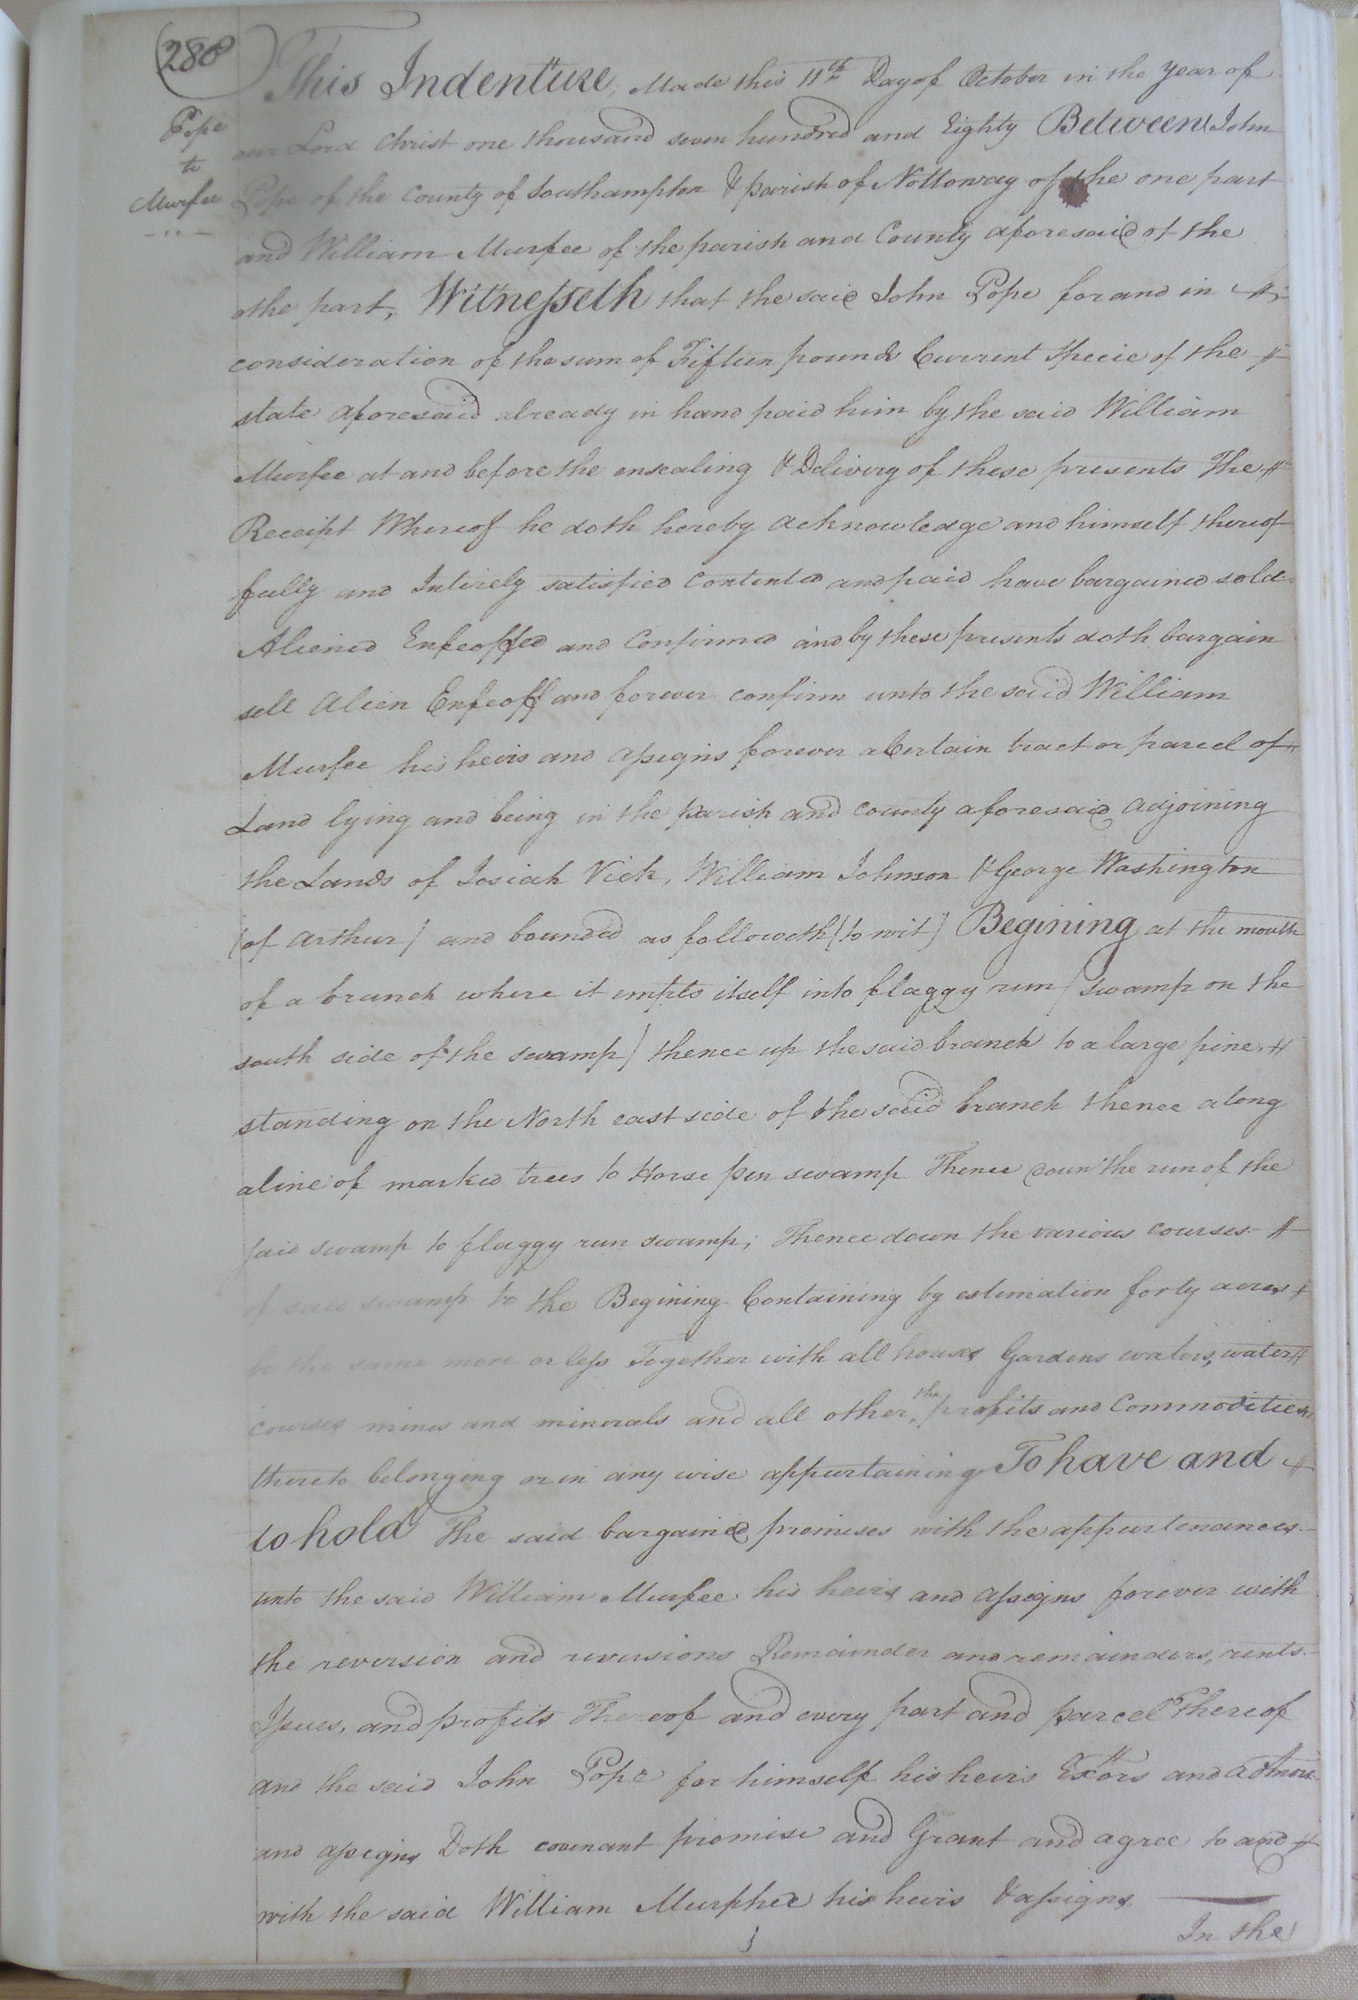 (288)
Pope
to
Murfee
This Indenture, Made this 11th Day of October in the Year of
our Lord Christ one thousand seven hundred and Eighty Between John
Pope of the County of Southampton & parish of Nottoway of the one part
and William Murfee of the parish and County aforesaid of the
othe part, Witnesseth that the said John Pope for and in
consideration of the sum of Fifteen pounds Current Specie of the
state aforesaid already in hand paid him by the said William
Murfee at and before the ensealing & Delivery of these presents The
Receipt Whereof he doth hereby acknowledge and himself thereof
fully and Intirely satisfied contented and paid have bargained sold
Aliened Enfeoffed and Confirmed and by these presents doth bargain
sell Alien Enfeoff and forever confirm unto the said William
Murfee his heirs and assigns forever a Certain tract or parcel of
Land lying and being in the parish and county aforesaid adjoining
the Lands of Josiah Vick, William Johnson & George Washington
(of Arthur) and bounded as followeth (to wit) Begining at the mouth
of a branch where it empts itself into flaggy run (swamp on the
south side of the swamp) thence up the said branch to a large pine
standing on the North east side of the said branch thence along
a line of marked trees to Horse pen swamp Thence down the run of the
said swamp to flaggy run swamp; Thence down the various courses
of said swamp to the Begining Containing by estimation forty acres
be the same more or less Together with all houses Gardens waters, water
courses mines and minerals and all other the profits and Commodities
thereto belonging or in any wise appurtaining To have and
to hold The said bargained premises with the appurtenances
unto the said William Murfee his heirs and assigns forever with
the reversion and reversions Remainder and remainders, rents
Issues, and profits Thereof and every part and parcel Thereof
and the said John Pope for himself his heirs Extors and admors
and assigns Doth covenant promise and Grant and agree to and
with the said William Murphee his heirs & assigns
In the